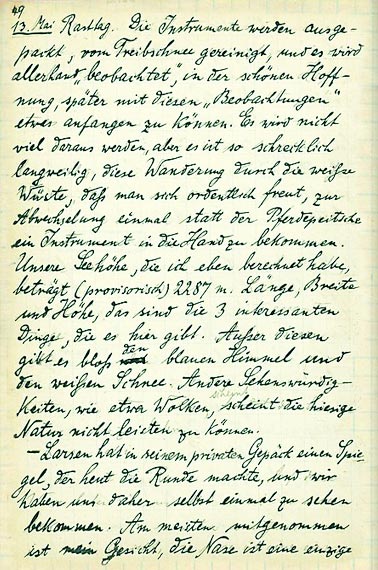 49
13. Mai Rasttag. Die Instrumente werden ausge-
packt, vom Treibschnee gereinigt, und es wird
allerhand „beobachtet", in der schönen Hoff-
nung, später mit diesen „Beobachtungen"
etwas anfangen zu können. Es wird nicht
viel daraus werden, aber es ist so schrecklich
langweilig, diese Wanderung durch die weiße
Wüste, daß man sich ordentlich freut, zur
Abwechselung einmal statt der Pferdepeitsche
ein Instrument in die Hand zu bekommen.
Unsere Seehöhe, die ich eben berechnet habe,
beträgt (provisorisch) 2287 m. Länge, Breite
und Höhe, das sind die 3 interessanten
Dinge, die es hier gibt. Außer diesen
gibt es bloß den blauen Himmel und
den weißen Schnee. Andere Sehenswürdig-
keiten, wie etwa Wolken, scheint die hiesige
Natur nicht leisten zu können.
– Larsen hat in seinem privaten Gepäck einen Spie-
gel, der heut die Runde machte, und wir
haben uns daher selbst einmal zu sehen
bekommen. Am meisten mitgenommen
ist mein Gesicht, die Nase ist eine einzige